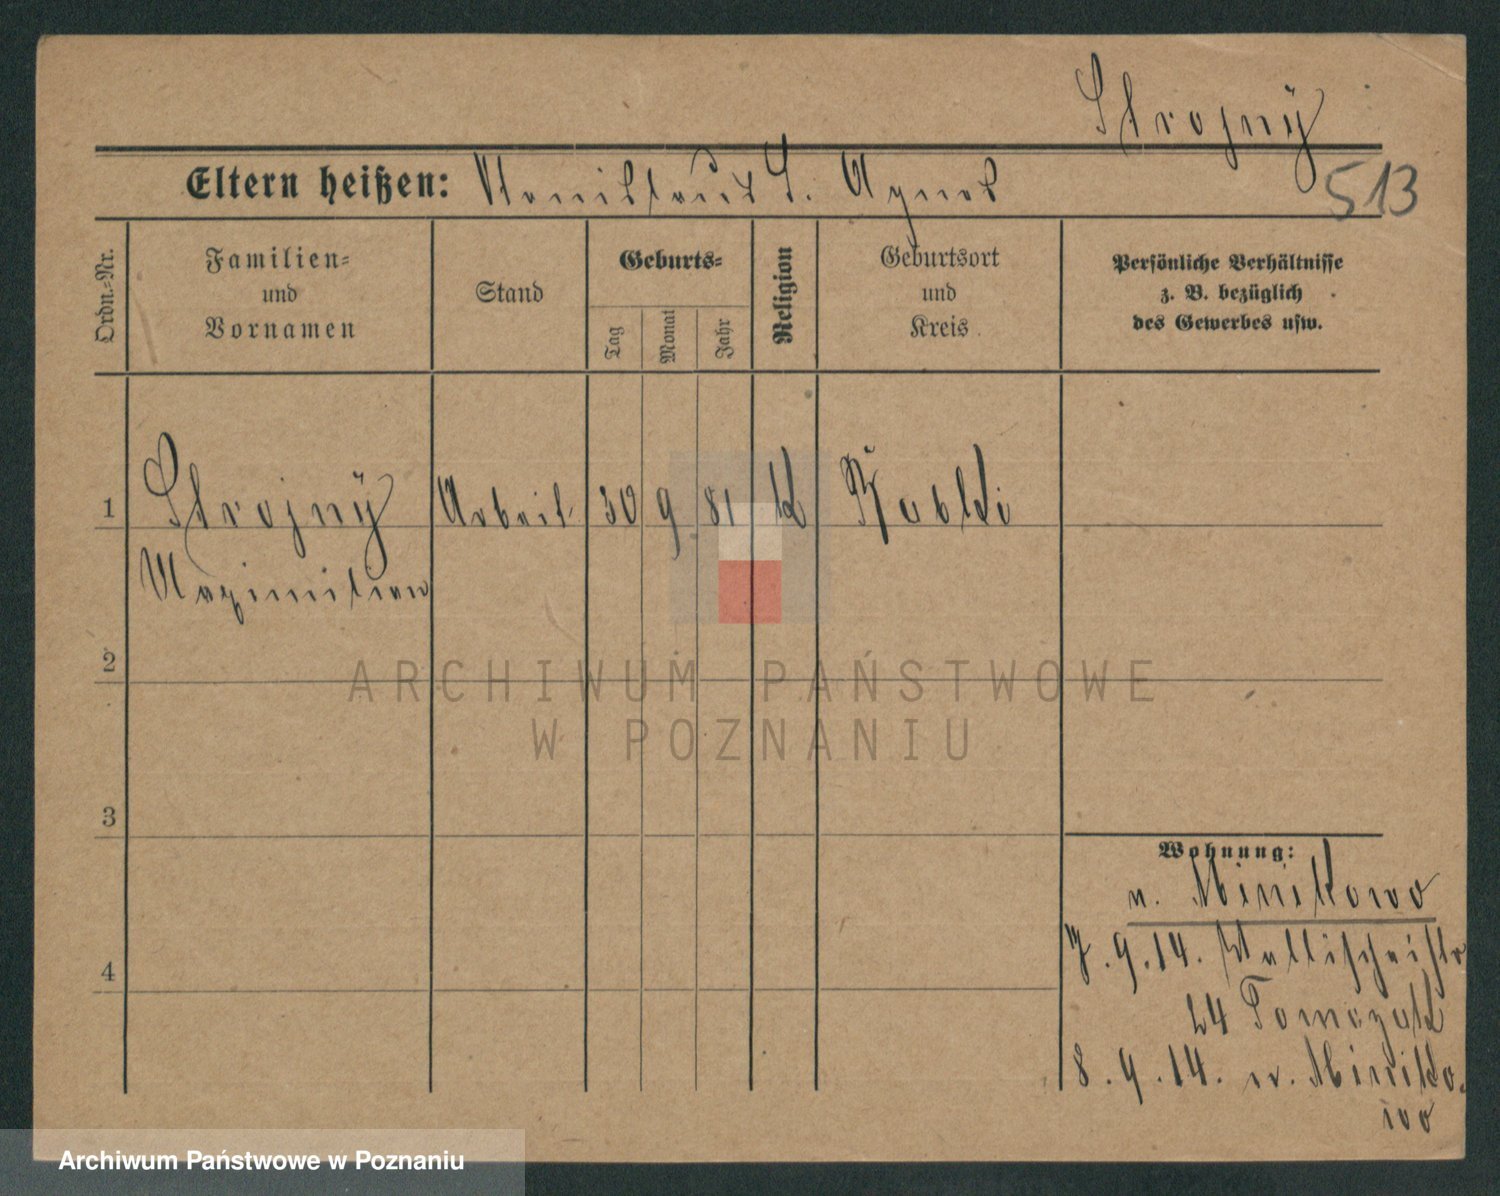 Strojny
513
Eltern heißen: Stanislaus u. Agnes
Ordn.-Nr.
Familien-
und
Vornamen
Stand
Geburts-
Tag
Monat
Jahr
Religion
Geburtsort
und
Kreis
Persönliche Verhältnisse
z. B. bezüglich
des Gewerbes usw.
1 Strojny Arbeit. 30 9. 81 k
Maximilian
2
3
4
Wohnung:
n. Minikowo
7.9.14. Wallischeistr
24 Tomczak
8.9.14. n. Miniko-
wo
ARCHIWUM PAŃSTWOWE
W POZNANIU
Archiwum Państwowe w Poznaniu